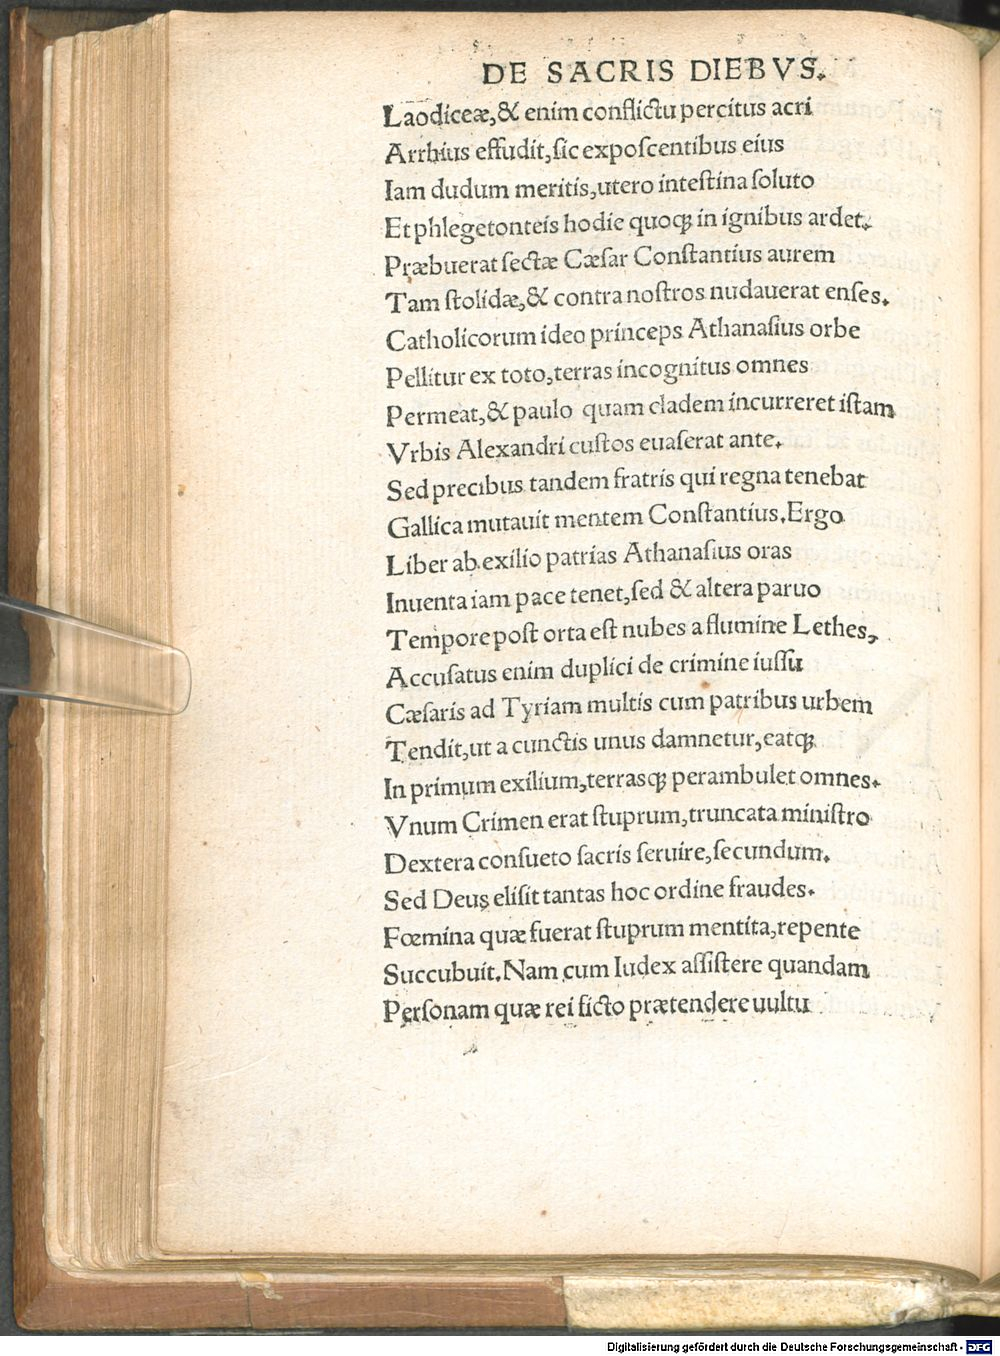 DE SACRIS DIEBVS.
Laodiceæ,& enim conflictu percitus acri
Arrhius effudit,sic exposcentibus eius
Iam dudum meritis,utero intestina soluto
Et phlegetonteis hodie quoqꝫ in ignibus ardet.
Præbuerat sectæ Cæsar Constantius aurem
Tam stolidæ,& contra nostros nudauerat enses.
Catholicorum ideo princeps Athanasius orbe
Pellitur ex toto,terras incognitus omnes
Permeat,& paulo quam cladem incurreret istam
Vrbis Alexandri custos euaserat ante.
Sed precibus tandem fratris qui regna tenebat
Gallica mutauit mentem Constantius.Ergo
Liber ab exilio patrias Athanasius oras
Inuenta iam pace tenet,sed & altera paruo
Tempore post orta est nubes a flumine Lethes,
Accusatus enim duplici de crimine iussu
Cæsaris ad Tyriam multis cum patribus urbem
Tendit,ut a cunctis unus damnetur,eatqꝫ
In primum exilium,terrasqꝫ perambulet omnes.
Vnum Crimen erat stuprum,truncata ministro
Dextera consueto sacris seruire,secundum.
Sed Deus elisit tantas hoc ordine fraudes.
Fœmina quæ fuerat stuprum mentita,repente
Succubuit.Nam cum Iudex assistere quandam
Personam quæ rei ficto prætendere uultu
Digitalisierung gefördert durch die Deutsche Forschungsgemeinschaft - DFG